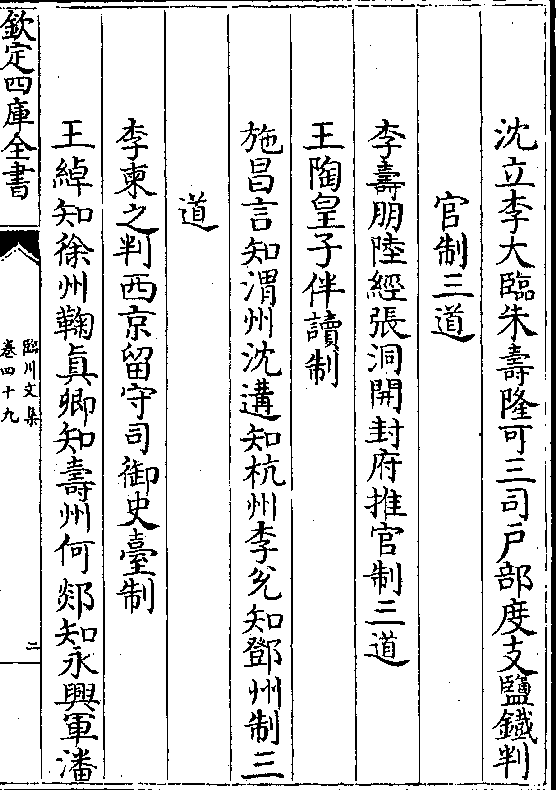 沈立李大臨朱壽隆可三司戶部度支鹽鐵判
官制三道
李壽朋陸經張洞開封府推官制三道
王陶皇子伴讀制
施昌言知渭州沈遘知杭州李兊知鄧州制三
道
李柬之判西京留守司御史臺制
王綽知徐州鞠眞卿知壽州何郯知永興軍潘
欽定四庫全書
臨川文集
卷四十九
二